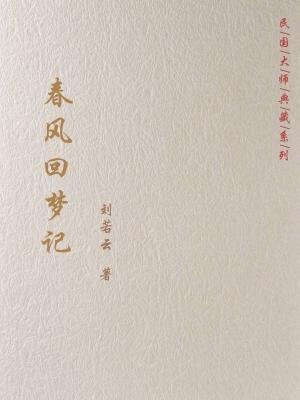 民|国|大|师|典|藏|系|列
春风回梦记
刘若云 著